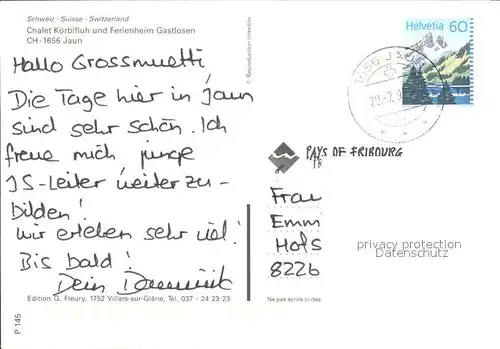 Schweiz - Suisse - Switzerland
Chalet Körbifluh und Ferienheim Gastlosen
CH-1656 Jaun
Hallo Grossmuetti
Die Tage hier in Jaun
sind sehr schön. Ich
freue mich, junge
JS-Leiter weiter zu-
bilden!
Wir erleben sehr viel!
Bis bald!
Dein Dominik
Edition G. Fleury, 1752 Villars-sur-Glâne, Tél. 037 - 24 23 23
P 145
© Reproduction interdite
Helvetia 60
1656 JAUN
PAYS DE FRIBOURG
Frau
Emmi
Hofs
8226
privacy protection
Datenschutz
Ne pas écrire ci-des